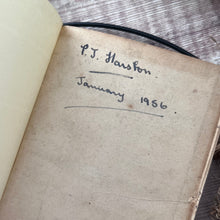 P. J. Harston.
January 1956.